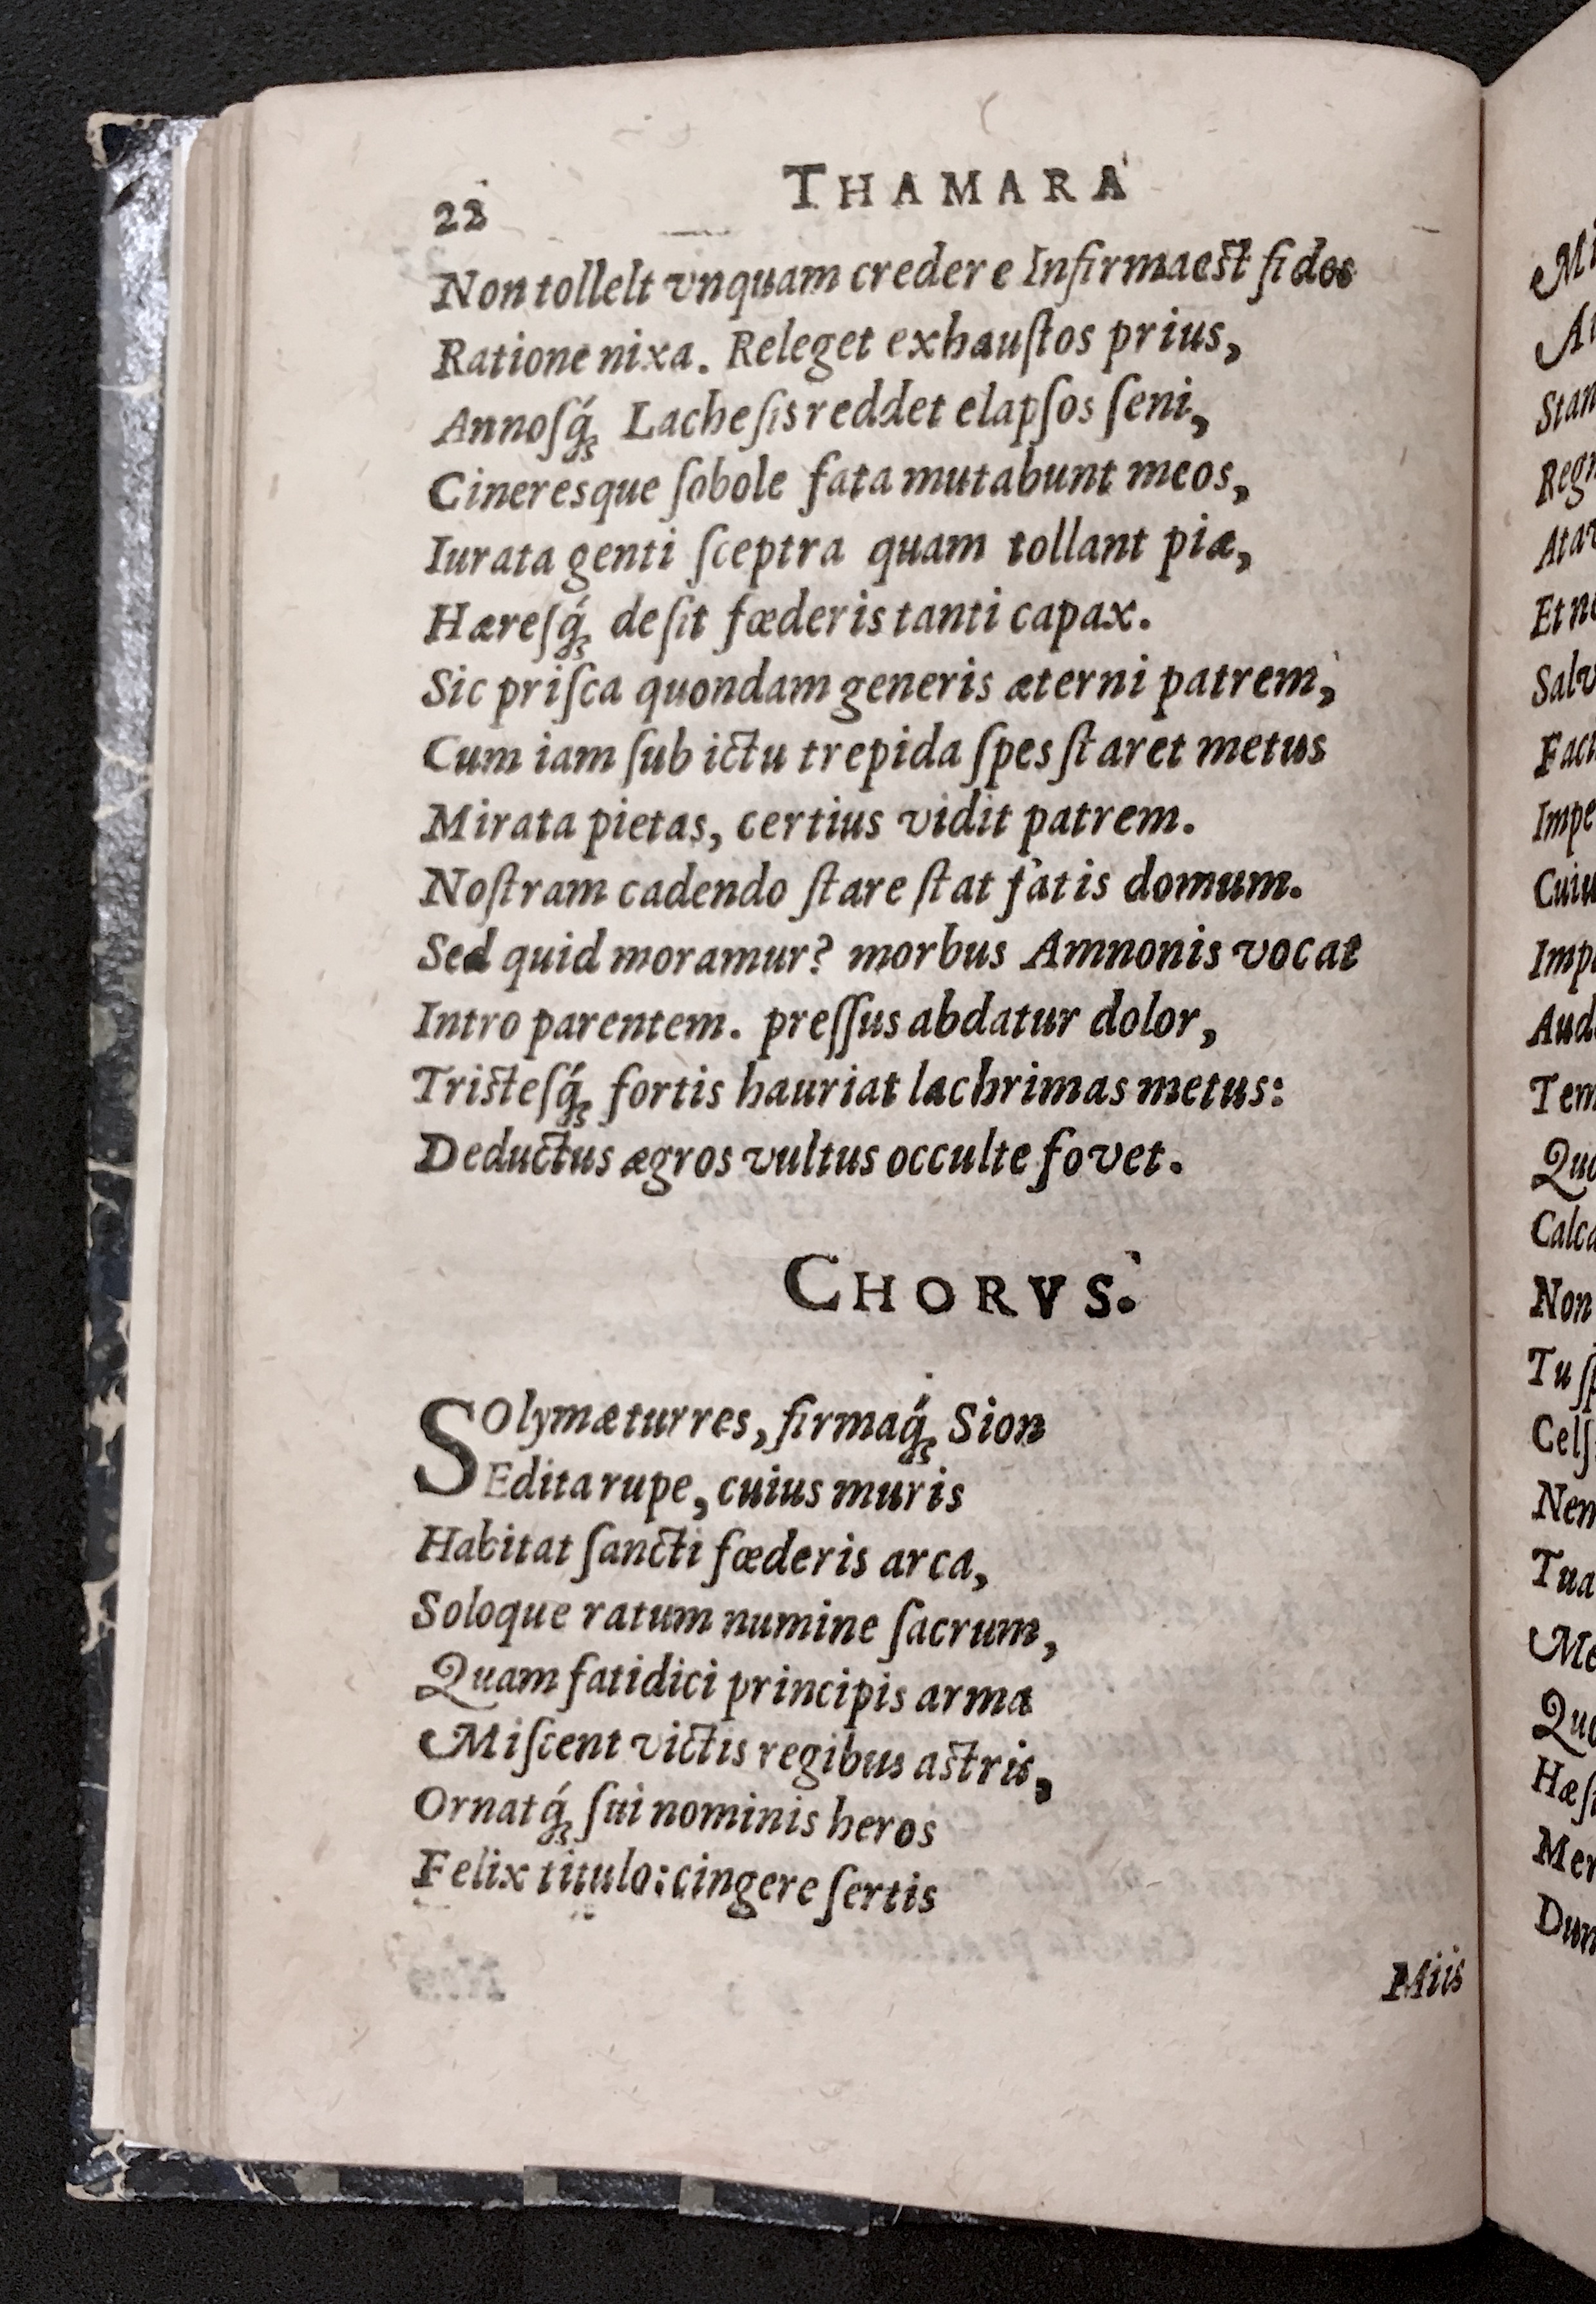 22 THAMARA
Non tollelt vnquam credere Infirma est fides
Ratione nixa. Releget exhauſtos prius,
Annoſq́ꝫ Lacheſis reddet elapſos ſeni,
Cineresque ſobole fata mutabunt meos,
Iurata genti ſceptra quam tollant piæ,
Hæreſq́ꝫ deſit fœderis tanti capax.
Sic priſca quondam generis æterni patrem,
Cum iam ſub ictu trepida ſpes ſtaret metus
Mirata pietas, certius vidit patrem.
Noſtram cadendo ſtare ſtat fatis domum.
Sed quid moramur? morbus Amnonis vocat
Intro parentem. preſſus abdatur dolor,
Triſteſq́ꝫ fortis hauriat lachrimas metus:
Deductus ægros vultus occulte fovet.
CHORVS.
SOlymæ turres, firmaq́ꝫ Sion
Edita rupe, cuius muris
Habitat ſancti fœderis arca,
Soloque ratum numine ſacrum,
Quam fatidici principis arma
Miſcent victis regibus aſtris,
Ornatq́ꝫ ſui nominis heros
Felix titulo: cingere ſertis
Miis
Stan
Regn
Atav
Et n
Salv
Fact
Impe
Cuiu
Imp
Aud
Tem
Quo
Calca
Non
Tu ſp
Celſ
Nem
Tua
Me
Qu
Hæſ
Mer
Dum